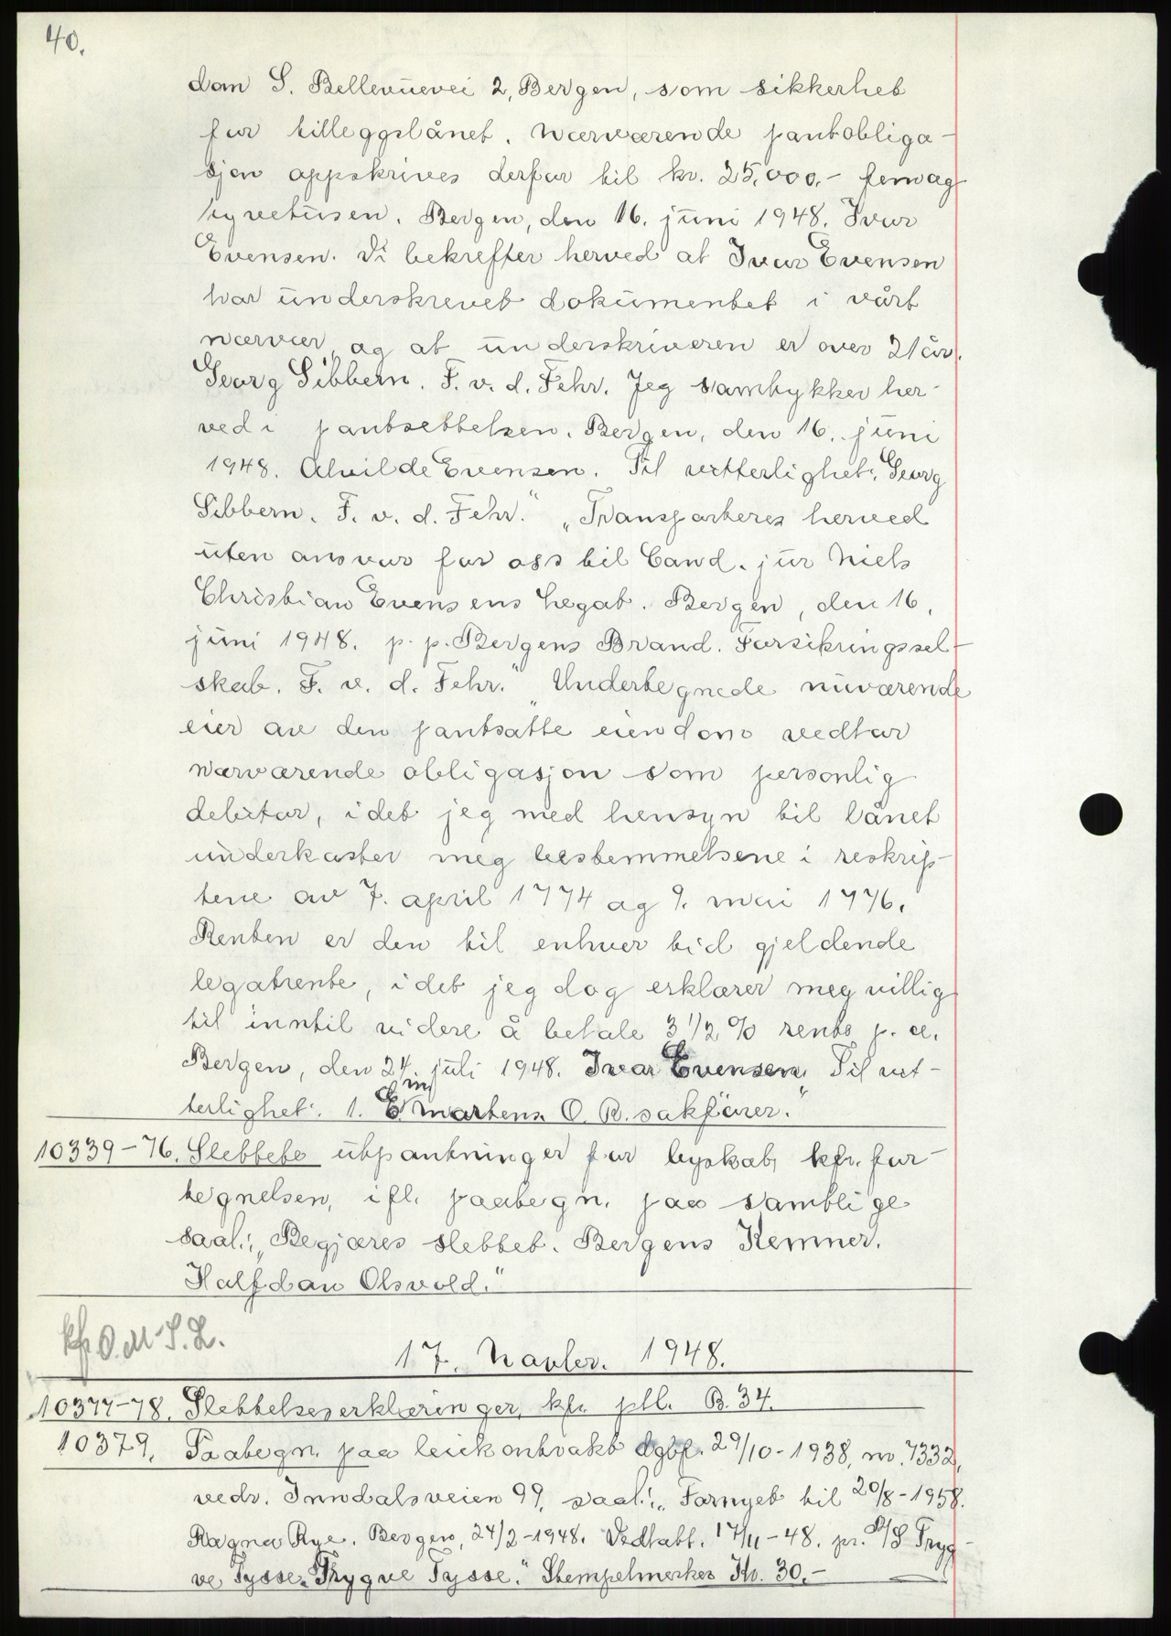 40.
dom S. Bellevuevei 2, Bergen, som sikkerhet
for tilleggslånet. Nærværende pantobliga-
sjon oppskrives derfor til kr. 25.000.- femog
tyvetusen. Bergen, den 16. juni 1948. Ivar
Evensen. Vi bekrefter herved at Ivar Evensen
har underskrevet dokumentet i vårt
nærvær og at underskriveren er over 21 år.
Georg Sibbern. F. v. d. Fehr. Jeg samtykker her-
ved i pantsettelsen. Bergen, den 16. juni
1948. Alvilde Evensen. Til vitterlighet: Georg
Sibbern. F. v. d. Fehr." „Transporteres herved
uten ansvar for oss til Cand. jur Niels
Christian Evensens Legat. Bergen, den 16.
juni 1948. p. p. Bergens Brand. Forsikringssel-
skab. F. v. d. Fehr." Undertegnede nuværende
eier av den pantsatte eiendom vedtar
nærværende obligasjon som personlig
debitor, idet jeg med hensyn til lånet
underkaster meg bestemmelsene i reskrip-
tene av 7. april 1774 og 9. mai 1776.
Renten er den til enhver tid gjeldende
legatrente, idet jeg dog erklærer meg villig
til inntil videre å betale 3 1/2 % rente p. a.
Bergen, den 24. juli 1948. Ivar Evensen. Til vit-
terlighet: 1. E Martens O. R. sakfører."
10339-76. Slettete utpantninger for byskatt, kfr. for-
tegnelsen, ifl. paategn. paa samtlige
saal.: „Begjæres slettet. Bergens Kemner.
Halfdan Olsvold."
kfr O. M. S. L.
17. Novbr. 1948.
10377-78. Slettelseserklæringer, kfr. ptl. B. 34.
10379. Paategn. paa leiekontrakt dgbf. 29/10-1938, nr. 7332,
vedr. Inndalsveien 99, saal.: „Fornyet til 20/8-1958.
Ragna Rye. Bergen, 24/2-1948. Vedtatt. 17/11-48. pr. A/S Tryg-
ve Tysse. Trygve Tysse." Stempelmerker Kr. 30.-